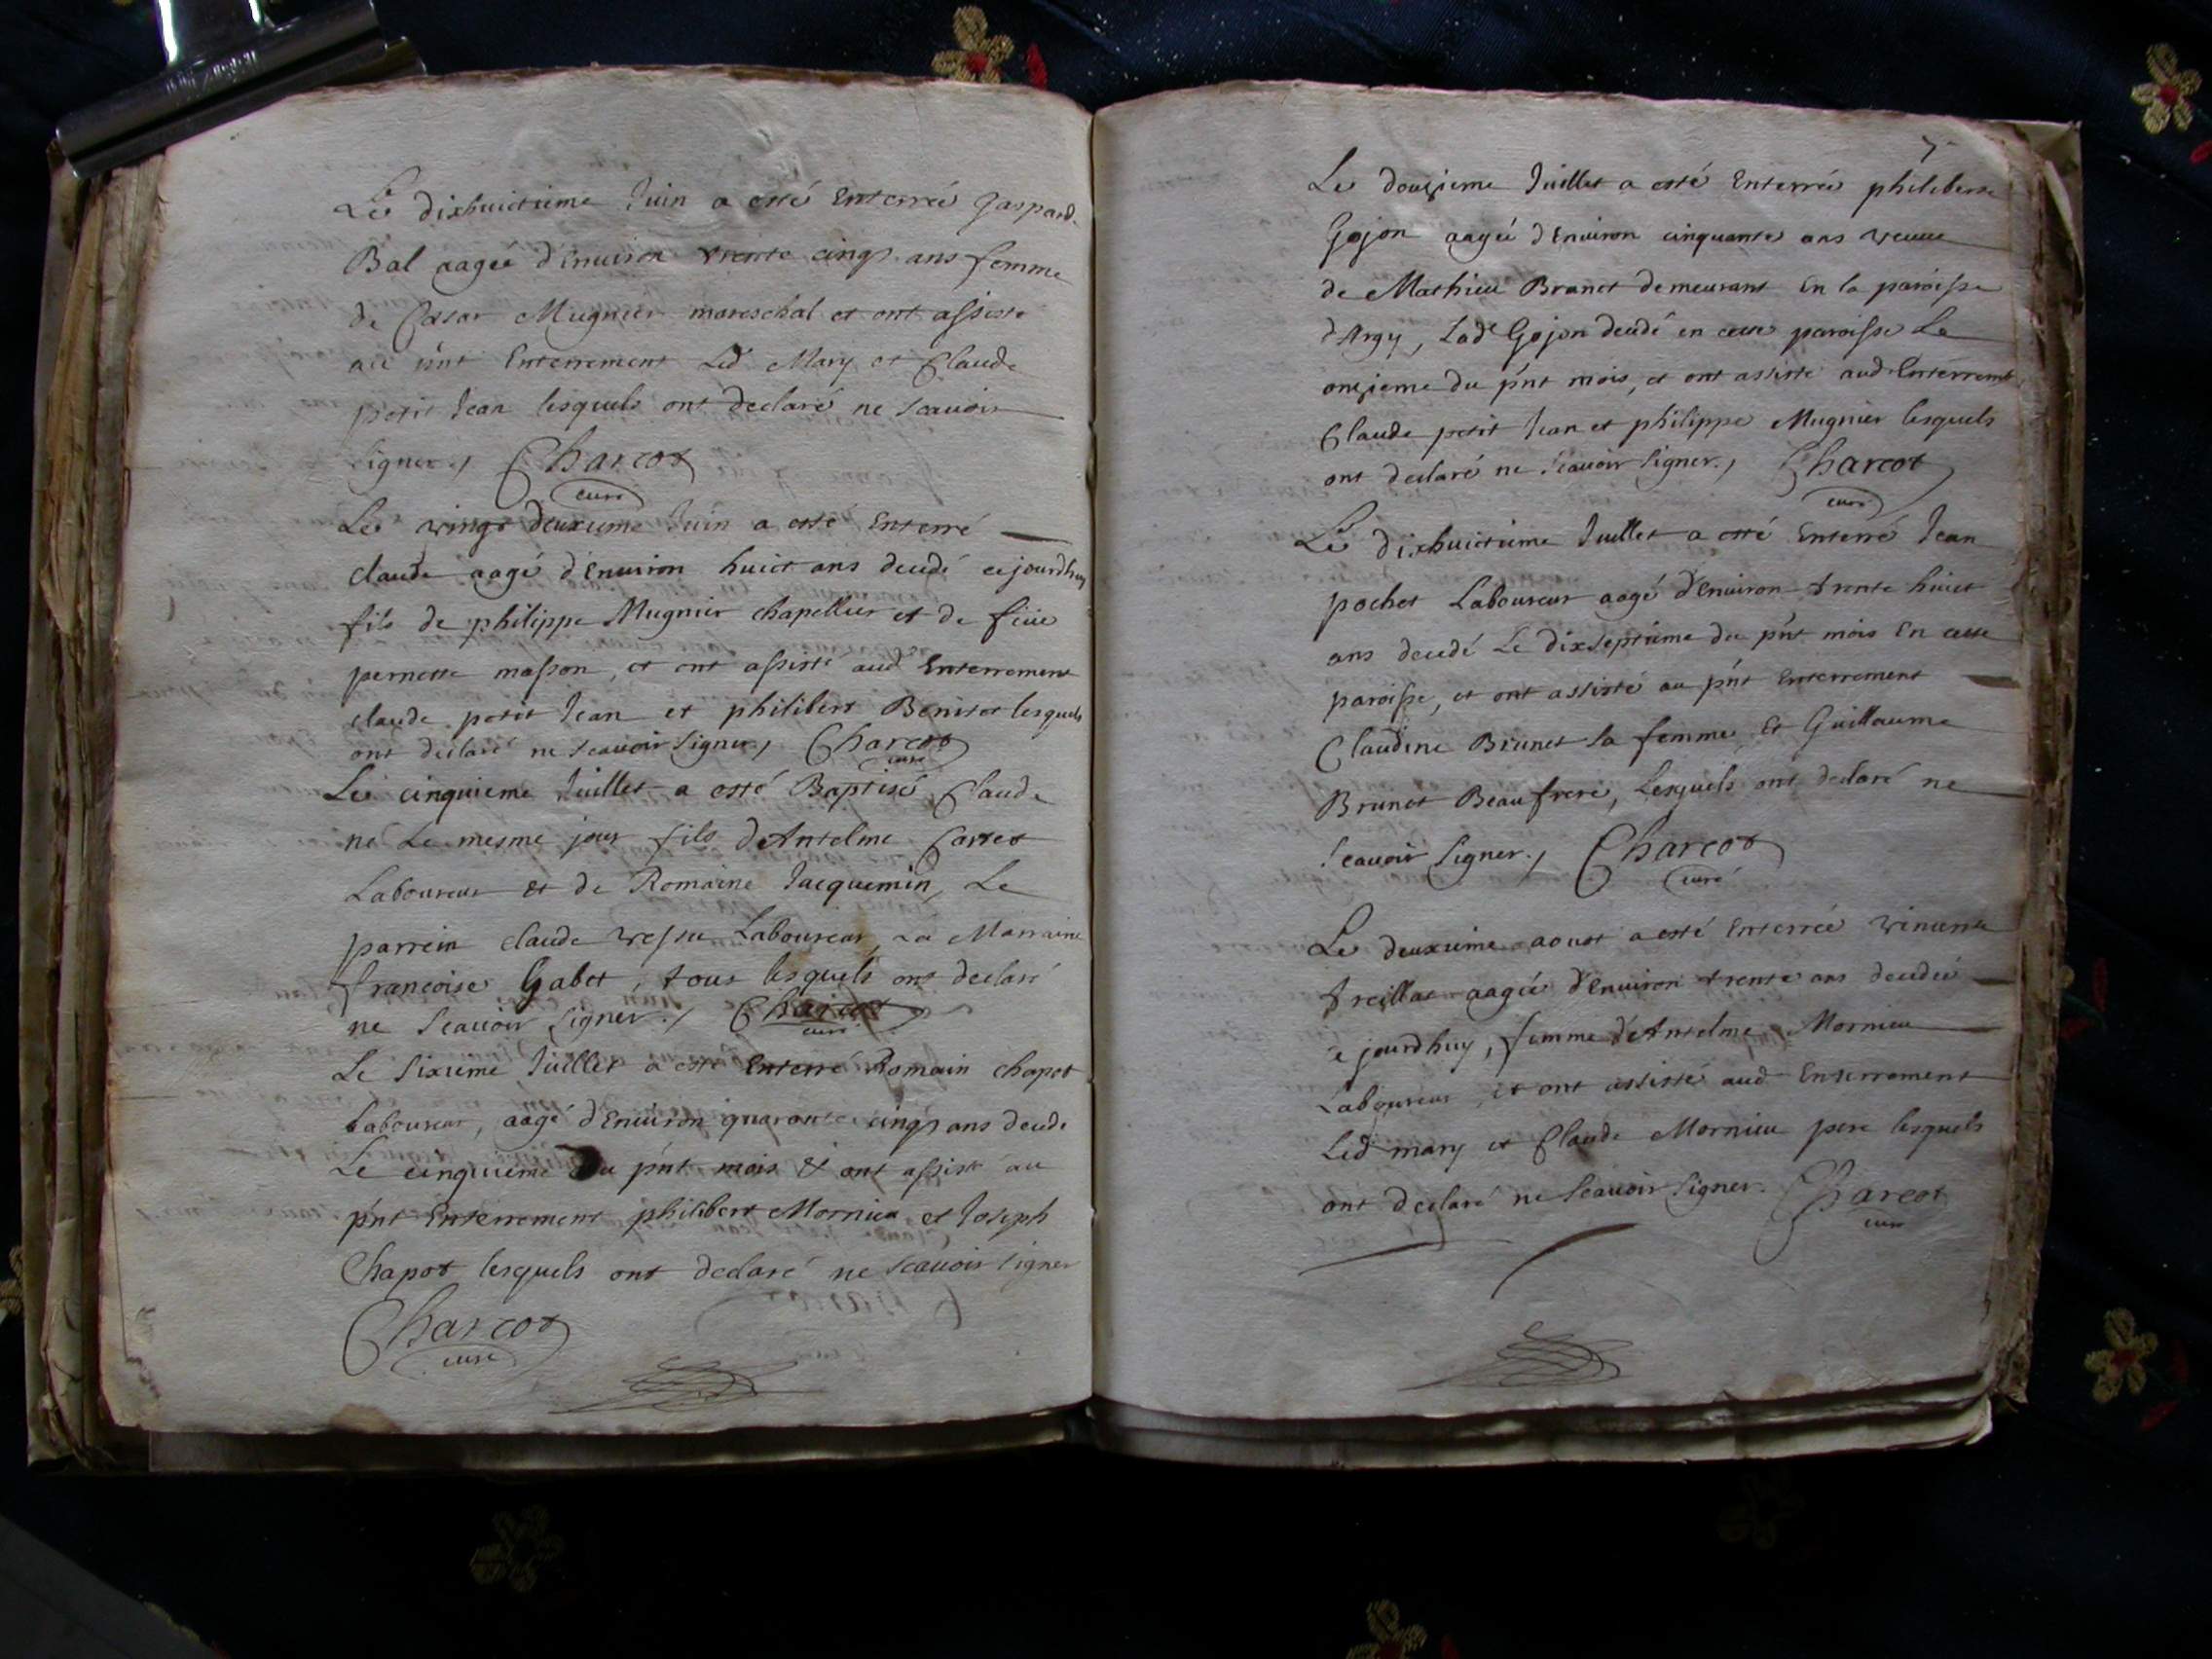 Le dixhuictieme Juin a esté Enterrée Gaspard
Bal aagée d'Enuiron trente cinq ans femme
de Cæsar Mugnier mareschal et ont assisté
au p'nt Enterrement Led Mary et Claude
petit Jean lesquels ont declaré ne scauoir
signer./ Charcot
curé
Le vingt deuxieme Juin a esté Enterré
claude aagé d'Enuiron huict ans decedé cejourdhuy
fils de philippe Mugnier chapellier et de feue
pernette masson, et ont assisté aud Enterrement
claude petit Jean et philibert Benitet lesquels
ont declaré ne scauoir signer./ Charcot
curé
Le cinquieme Juillet a esté Baptisé Claude
né Le mesme jour fils d'Antelme Carret
Laboureur et de Romaine Jacquemin, Le
parrein claude vessu Laboureur, La Marraine
francoise Gabet, tous lesquels ont declaré
ne scauoir signer./ Charcot
curé
Le sixieme Juillet a esté Enterré Romain chapot
Laboureur, aagé d'Enuiron quarante cinq ans decedé
Le cinquieme du p'nt mois et ont assisté au
p'nt Enterrement philibert Mornieu et Joseph
Chapot lesquels ont declaré ne scauoir signer
Charcot
curé
7
Le douzieme Juillet a esté Enterrée philiberte
Gojon aagée d'Enuiron cinquante ans veuue
de Mathieu Brunet demeurant En la paroisse
d'Argy, Lad Gojon decedé en cette paroisse Le
onzieme du p'nt mois, et ont assisté aud Enterremt
Claude petit Jean et philippe Mugnier lesquels
ont declaré ne scauoir signer./ Charcot
curé
Le dixhuictieme Juillet a esté Enterré Jean
pochet Laboureur aagé d'Enuiron trente huict
ans decedé Le dixseptieme du p'nt mois En cette
paroisse, et ont assisté au p'nt Enterrement
Claudine Brunet sa femme, Et Guillaume
Brunet Beaufrere, Lesquels ont declaré ne
scauoir signer./ Charcot
curé
Le deuxieme aoust a esté Enterrée vincente
treillat aagée d'Enuiron trente ans decedée
cejourdhuy, femme d'Antelme Mornieu
Laboureur, et ont assisté aud Enterrement
Led mary et Claude Mornieu pere lesquels
ont declaré ne scauoir signer. Charcot
curé